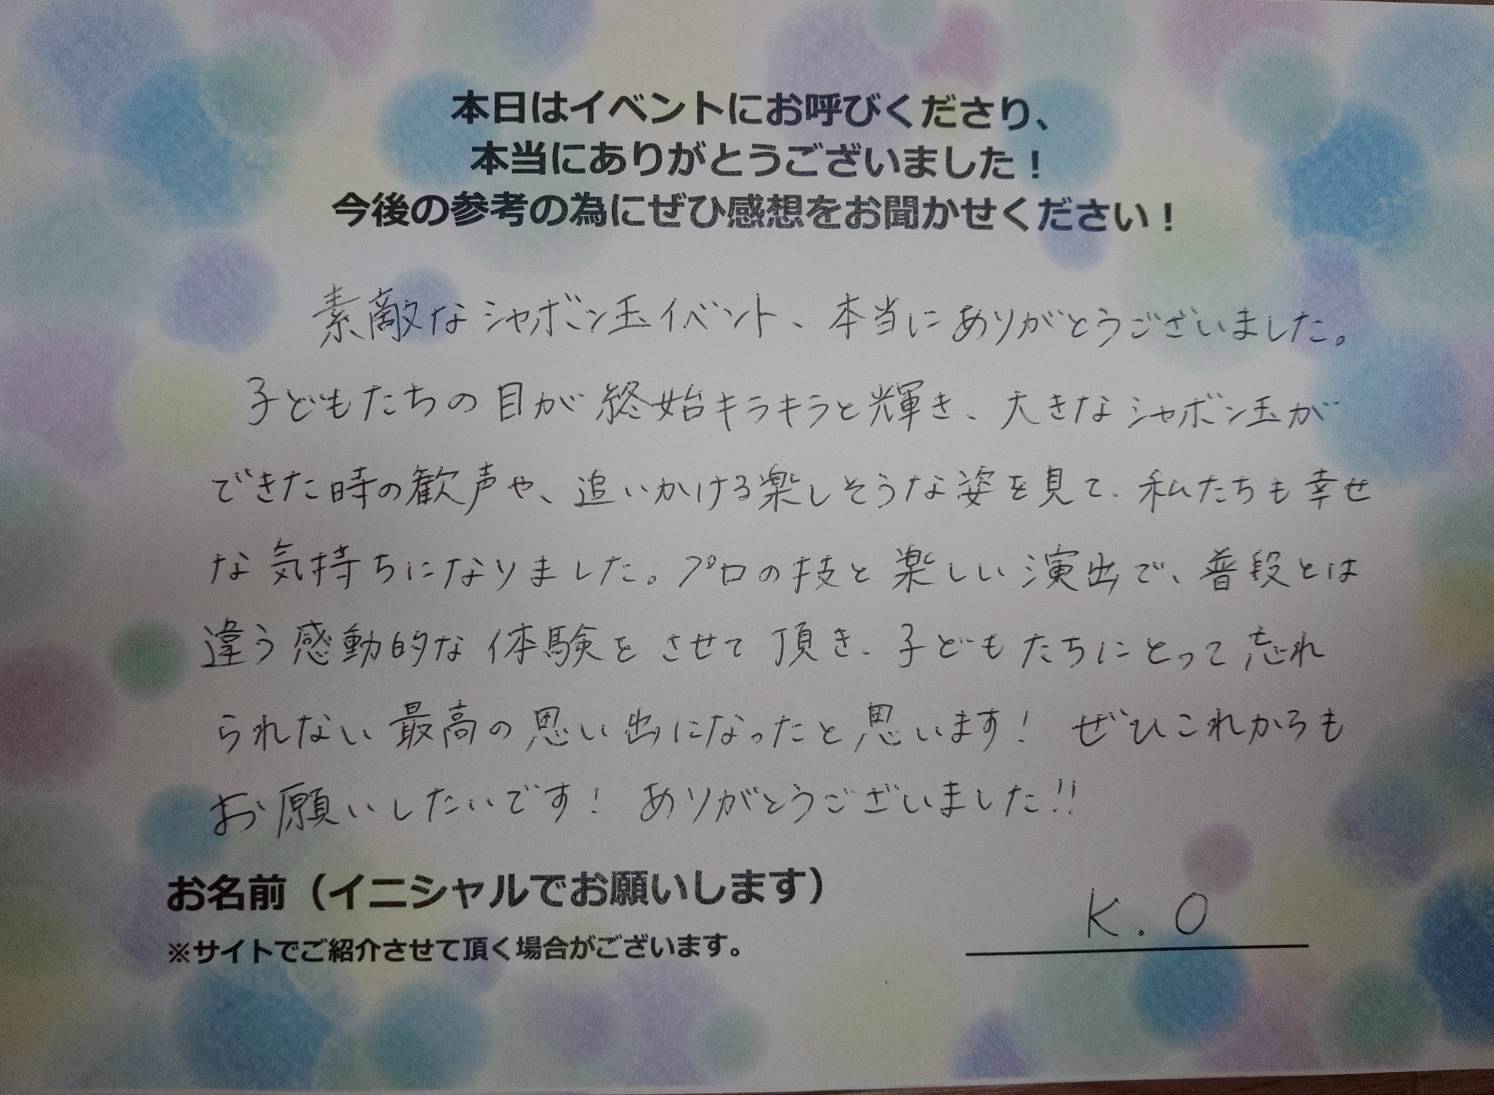 本日はイベントにお呼びくださり、
本当にありがとうございました！
今後の参考の為にぜひ感想をお聞かせください！
素敵なシャボン玉イベント、本当にありがとうございました。
子どもたちの目が終始キラキラと輝き、大きなシャボン玉が
できた時の歓声や、追いかける楽しそうな姿を見て、私たちも幸せ
な気持ちになりました。プロの技と楽しい演出で、普段とは
違う感動的な体験をさせて頂き、子どもたちにとって忘れ
られない最高の思い出になったと思います！ ぜひこれからも
お願いしたいです！ ありがとうございました!!
お名前（イニシャルでお願いします）
K.O
※サイトでご紹介させて頂く場合がございます。